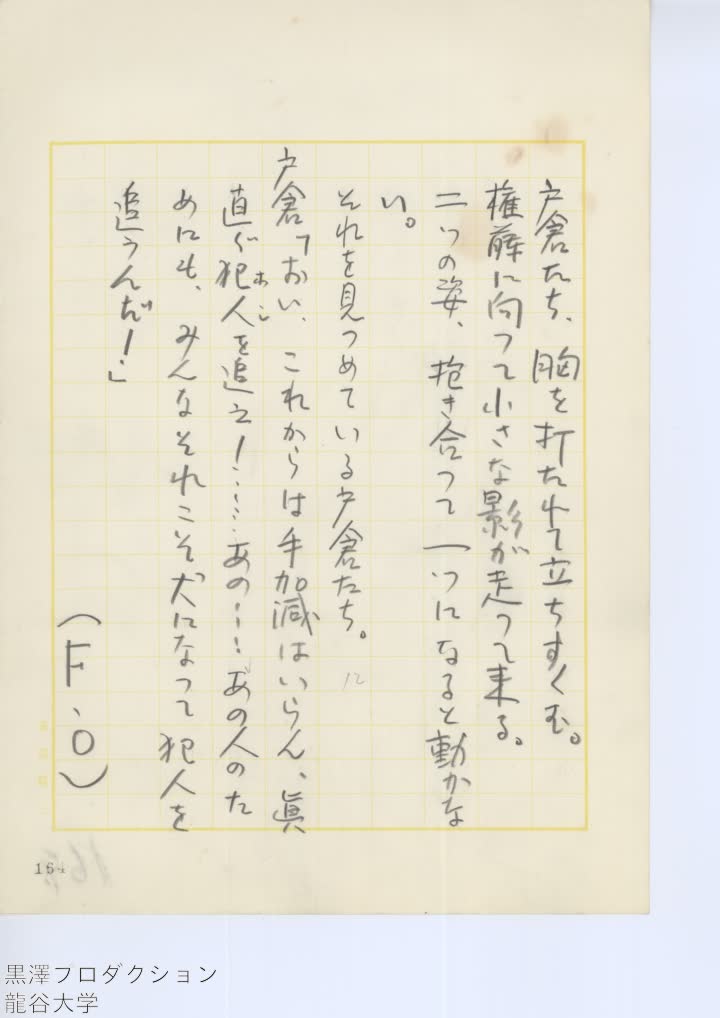 戸倉たち、胸を打たれて立ちすくむ。
権藤に向って小さな影が走って来る。
二つの姿、抱き合って一つになると動かな
い。
それを見つめている戸倉たち。
戸倉「おい、これからは手加減はいらん、眞
直ぐ犯人を追え!……あの……あの人のた
ホシ
めにも、みんなそれこそ犬になって犯人を
追うんだ!」
(F、O)
164
黒澤プロダクション
龍谷大学